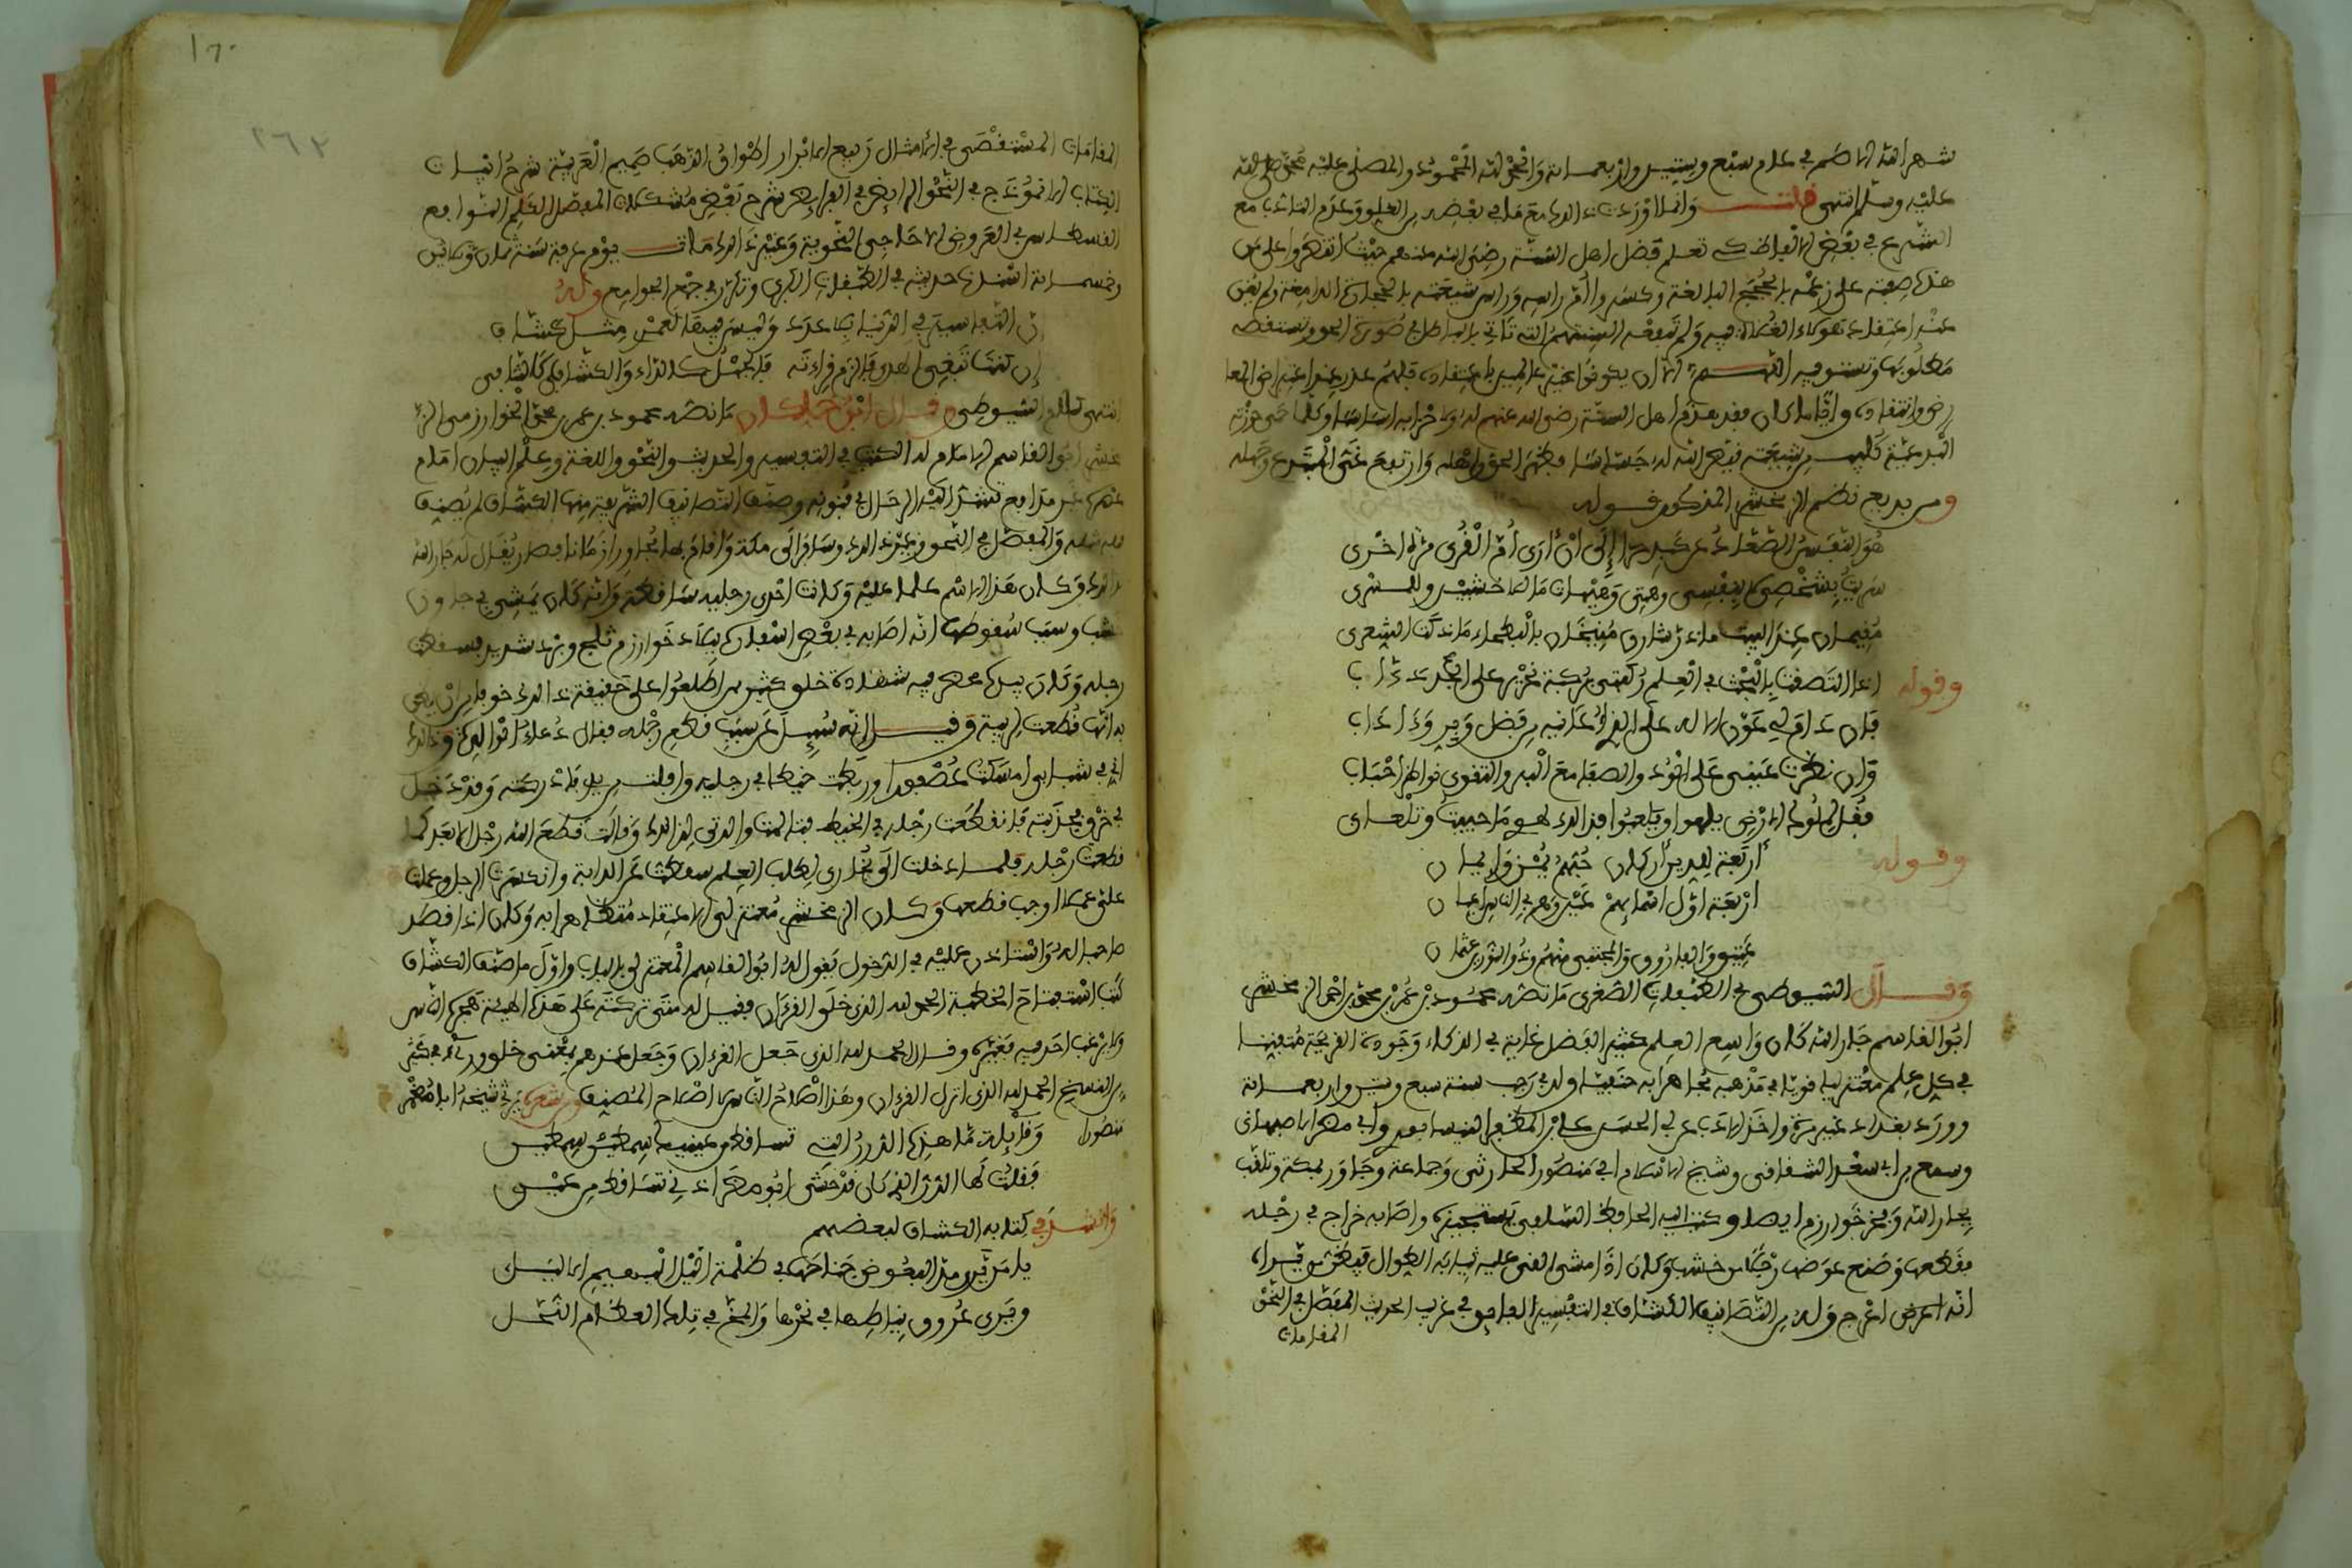 شهر الله الاصم في عام سبع وستين واربعمائة والحمد لله المحمود والمصلى عليه محمد صلى الله
عليه وسلم انتهى قلت وانما اوردت ذلك مع ما في بعضه من الغلو وعدم التادب مع
الشرع في بعض الالفاظ كي تعلم فضل اهل السنة رضي الله عنهم حيث اظهروا على من
هذه صفته على زعمه بالحجج البالغة وكسروا ام راسه وراس شيعته بالحجارة الدامغة ولم يغن
عنه اعتقاد هؤلاء الغلاة فيه ولم تنفعه السنتهم التي تاتي بالباطل في صورة الحق وتستفصه
مطلوبها وتستوفيه اللهم الا ان يكونوا غير عالمين باعتقاده فلهم عذر عند اعتراض المعا
رض وانتقاده واياما كان فقد هدم اهل السنة رضي الله عنهم له ولاحزابه اساسا وكلما حمى حوزته
البدعية كليب من شيعته قيض الله له جساسا فظهر الحق واهله وارتفع عن المبتدع وجهله
ومن بديع نظم الزمخشري المذكور قوله
هو النفس الصعداء عن كبد حرا الى ان ارى ام القرى مرة اخرى
سريت بشخصي لا بنفسي وهمتي وهيهات ما لخشبين وللمسرى
مقيمان عند البيت ما ذر شارق منيخان بالبطحاء ما ذكت الشعرى
وقوله اذا التصقت بالبحث في العلم ركبتي بركبة نحرير على الجد داب
فان
وان نظرت عيني على الجود والصفا مع البر والتقوى فواطن احباب
فقل لملوك الارض يلهوا ويلعبوا فذلك لهوي ما حييت وتلعابي
وقوله اربعة للدين اركان حبهم يمن وايمان
اربعة اول اسمائهم عين وهم في الناس اعيان
عتيق والفاروق والمجتبى منهم وذو النورين عثمان
وقال السيوطي في الطبقات الصغرى ما نصه محمود بن عمر بن محمد بن احمد الزمخشري
ابو القاسم جار الله كان واسع العلم كثير الفضل غاية في الذكاء وجودة القريحة متفننا
في كل علم معتزليا قويا في مذهبه مجاهرا به حنفيا ولد في رجب سنة سبع وستين واربعمائة
وورد بغداد غير مرة واخذ الادب عن ابي الحسن علي بن المظفر النيسابوري وابي مضر الاصبهاني
وسمع من ابي سعد الشقاني وشيخ الاسلام ابي منصور الحارثي وجماعة وجاور بمكة وتلقب
بجار الله وفخر خوارزم ايضا وكتب اليه الحافظ السلفي يستجيزه واصابه خراج في رجله
فقطعها وصنع عوضها رجلا من خشب وكان اذا مشى القى عليه ثيابه الطوال فيظن من يراه
انه اعرج وله من التصانيف الكشاف في التفسير الفايق في غريب الحديث المفصل في النحو
المقامات
١٦٠
٢٦٢
المقامات المستقصى في الامثال ربيع الابرار اطواق الذهب صميم العربية شرح ابيات
الكتاب الانموذج في النحو الرايض في الفرايض شرح بعض مشكلات المفصل الكلم النوابغ
القسطاس في العروض الاحاجي النحوية وغير ذلك مات يوم عرفة سنة ثمان وثلاثين
وخمسمائة اسندنا حديثه في الطبقات الكبرى وتكرر في جمع الجوامع وله
ان التفاسير في الدنيا بلا عدد وليس فيها لعمري مثل كشاف
ان كنت تبغي الهدى فالزم قراءته فالجهل كالداء والكشاف كالشافي
انتهى كلام السيوطي وقال ابن خلكان ما نصه محمود بن عمر بن محمد الخوارزمي الزمخـ
شري ابو القاسم الامام له الكتب في التفسير والحديث والنحو واللغة وعلم البيان امام
عصره غير مدافع تشد اليه الرحال في فنونه وصنف التصانيف الشريفة منها الكشاف لم يصنف
قبله مثله والمفصل في النحو وغير ذلك وسافر الى مكة واقام بها مجاورا زمانا فصار يقال له جار الله
لذلك وكان هذا الاسم علما عليه وكانت احدى رجليه ساقطة وانه كان يمشي في جارون
خشب وسبب سقوطها انه اصابه في بعض اسفاره ببلاد خوارزم ثلج وبرد شديد فسقطت
رجله وكان بيده محضر فيه شهادة خلق كثير ممن اطلعوا على حقيقة ذلك خوفا من ان يظن
به انها قطعت لريبة وقيل انه سيل عن سبب قطع رجله فقال دعاء الوالدة وذلك
اني في شبابي امسكت عصفورا وربطت خيطا في رجليه وافلت من يدي فادركته وقد دخل
في خرق فجذبته فانقطعت رجله في الخيط فتالمت والدتي لذلك وقالت قطع الله رجل الابعد كما
قطعت رجله فلما دخلت الى بخارى لطلب العلم سقطت عن الدابة وانكسرت الرجل وعملت
علي عملا اوجب قطعها وكان الزمخشري معتزلي الاعتقاد متظاهرا به وكان اذا قصد
صاحبا له واستاذن عليه في الدخول يقول له ابو القاسم المعتزلي بالباب واول ما صنف الكشاف
كتب استفتاح الخطبة الحمد لله الذي خلق القرءان فقيل له متى تركته على هذه الهيئة هجره الناس
ولا يرغب احد فيه فغيره وقال الحمد لله الذي جعل القرءان وجعل عندهم بمعنى خلق ورايت في كثير
من النسخ الحمد لله الذي انزل القرءان وهذا اصلاح الناس لا اصلاح المصنف ومن شعره يرثي شيخه ابا مضر
منصورا وقايلة ما هذه الدرر التي تساقط من عينيك سمطين سمطين
فقلت لها الدر الذي كان قد حشى ابو مضر اذني تساقط من عيني
وانشد في كتابه الكشاف لبعضهم
يا من يرى مد البعوض جناحها في ظلمة الليل البهيم الاليل
ويرى عروق نياطها في نحرها والمخ في تلك العظام النحل